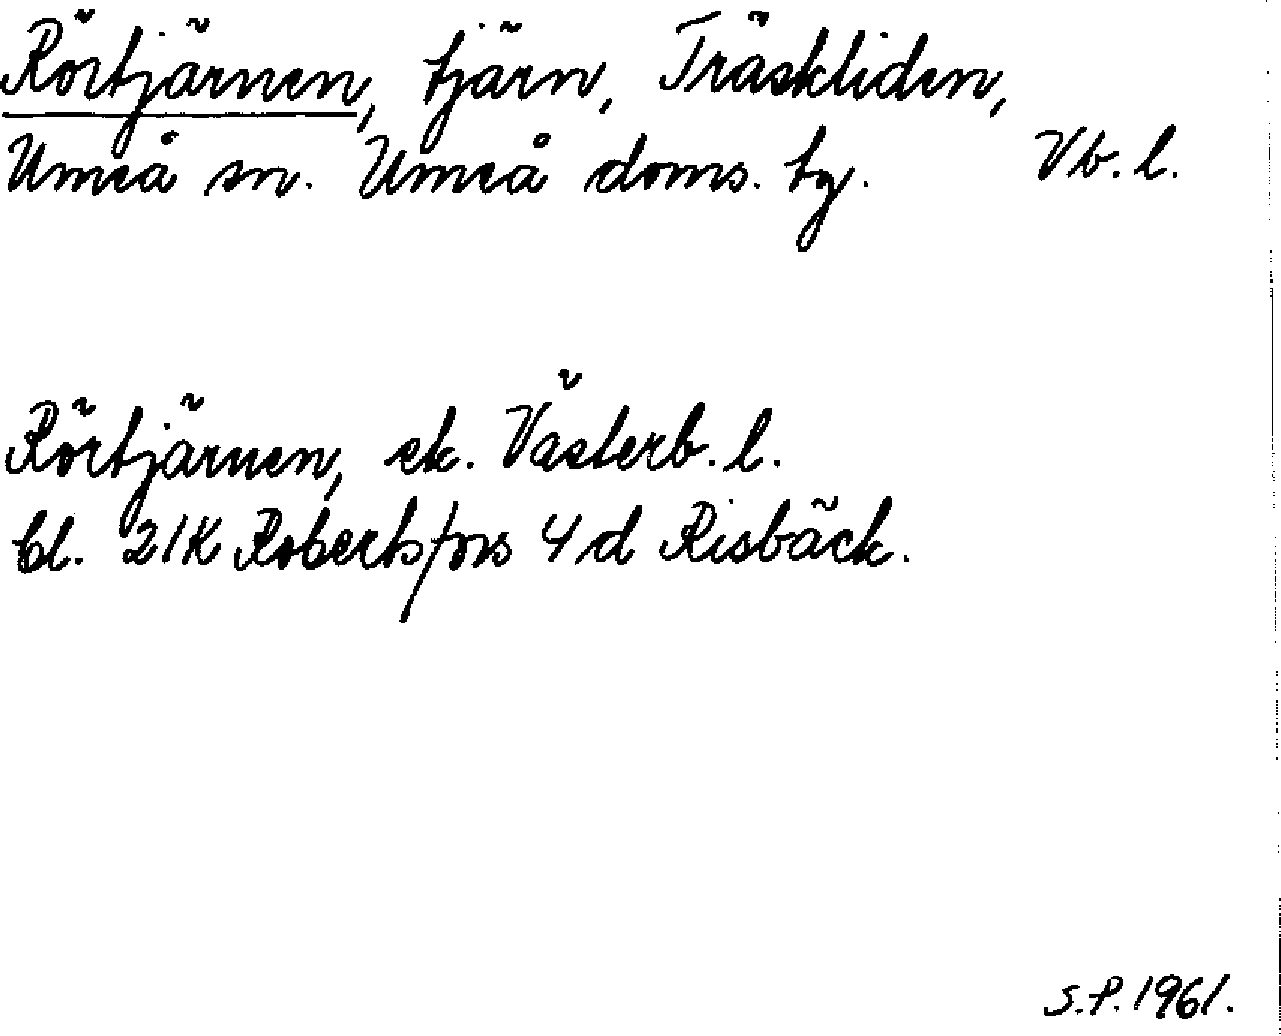 Rörtjärnen, tjärn, Träskliden,
Umeå sn. Umeå doms. tg. Vb. l.
Rörtjärnen, ek. Västerb. l.
bl. 21K Robertsfors 4d Risbäck.
S.P. 1961.